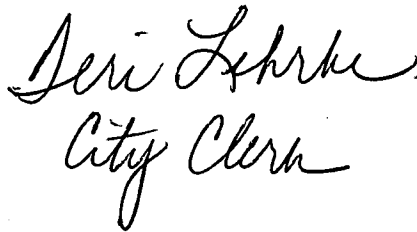 Teri Lehrke
City Clerk